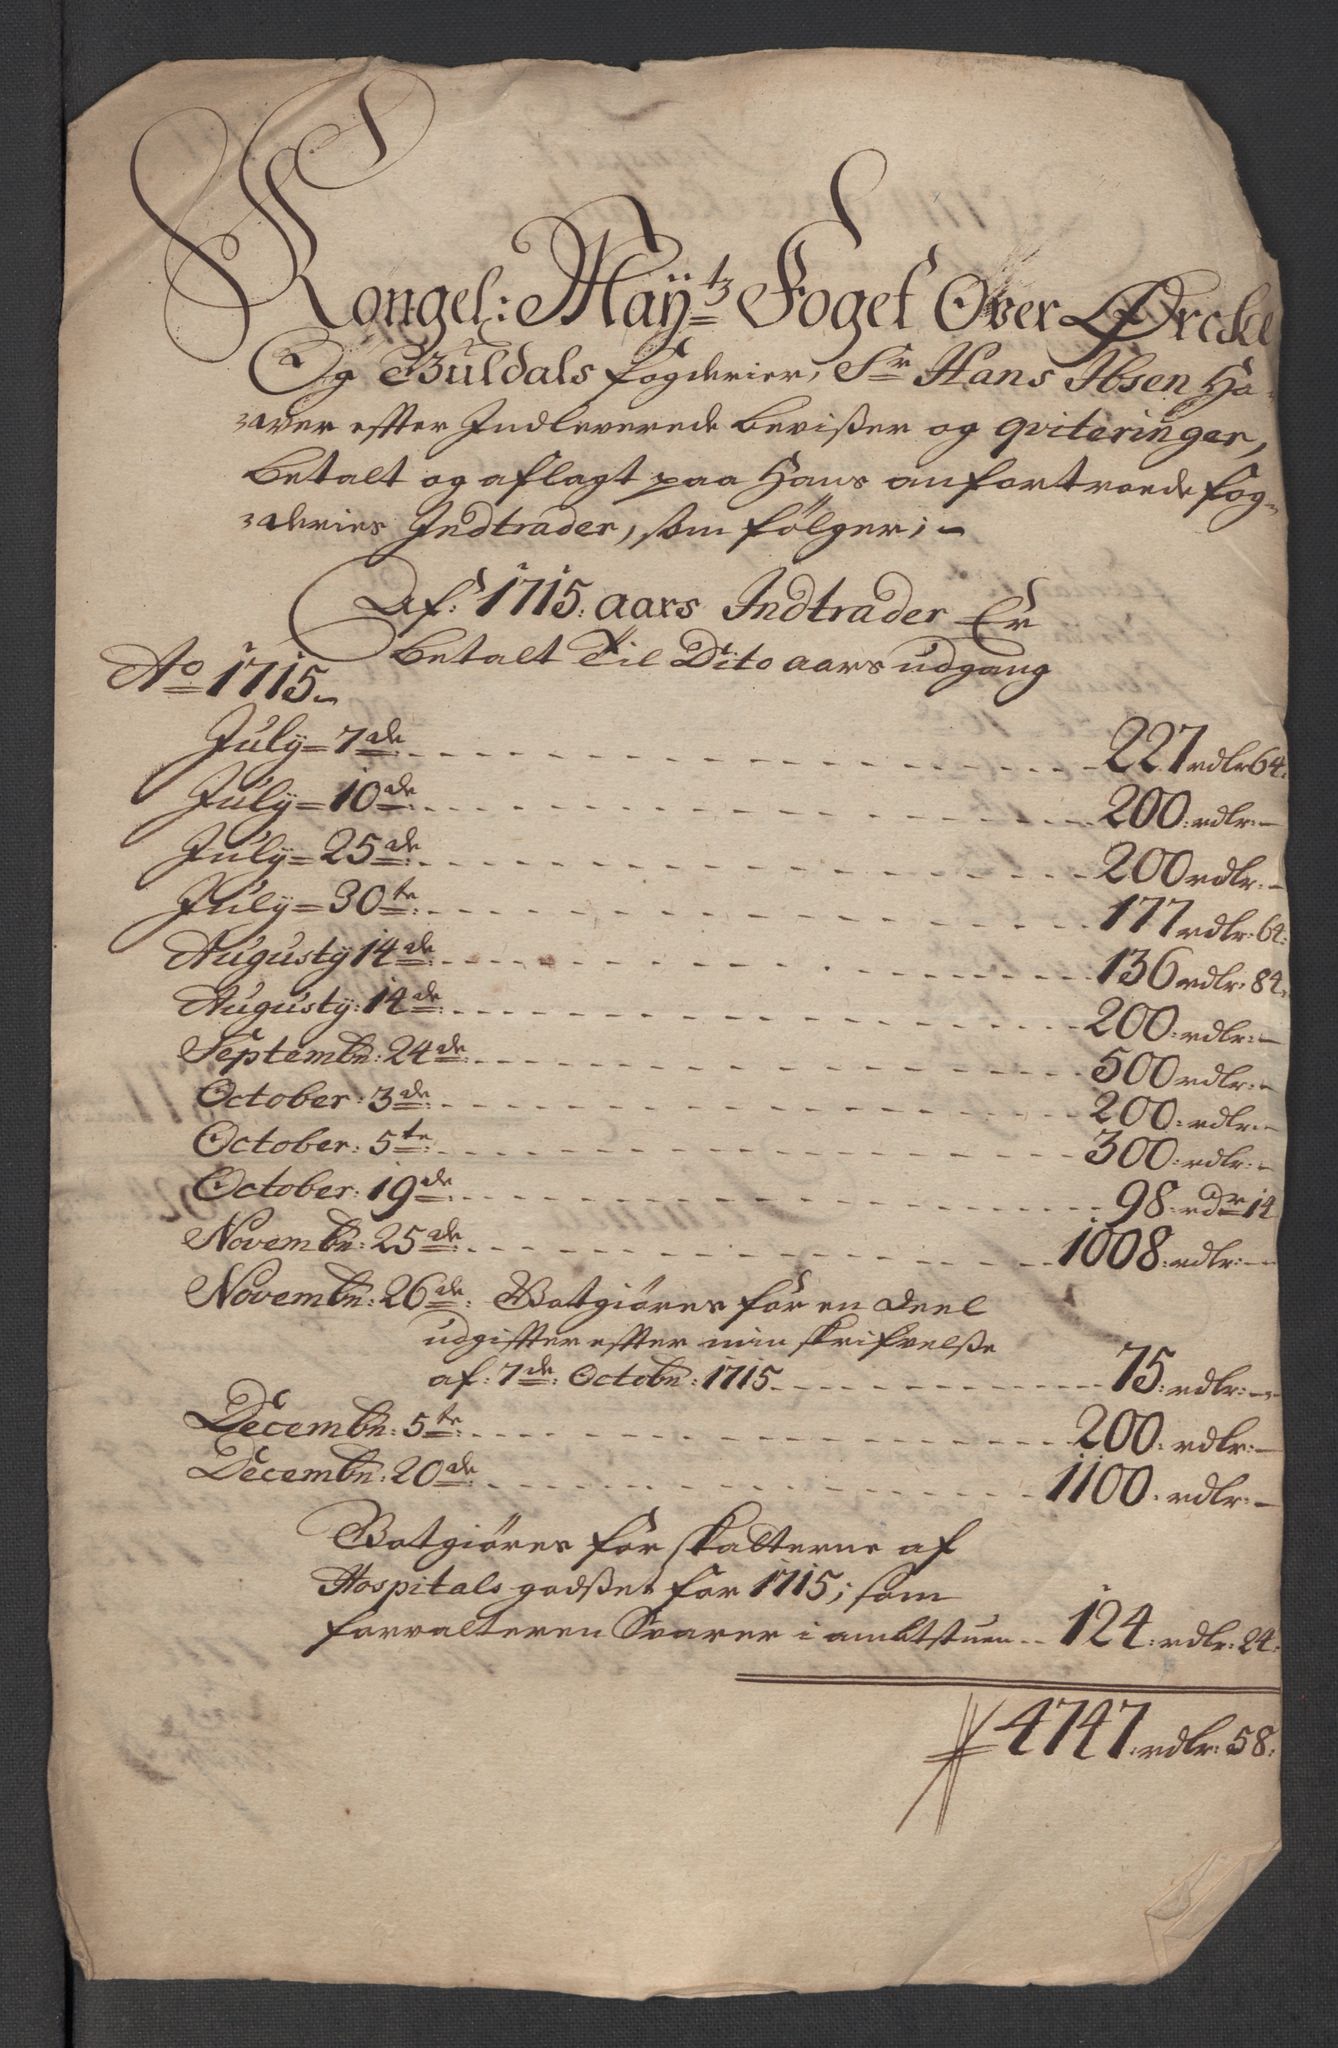 Kongel: Maÿtz Foget Over Ørckel
Og Guldals fogderier, Sr Hans Ibsen Ha-
-wer effter Indleverede bevißer og qviteringer,
betalt og aflagt paa Hans anfortroede fog-
-deries Indtrader, som følger;-
Af: 1715. aars Indtrader Er
betalt Til Dito aars udgang
Ao 1715.
July 7de 227 rdlr 64:
July 10de 200: rdlr:-
July 25de 200 rdlr:-
July 30te 177 rdlr: 64:
Augusty 14de 136 rdlr: 84:
Augusty: 14de 200: rdlr:-
Septembr: 24de 500 rdlr:-
October: 3de 200: rdlr:-
October: 5te 300: rdlr:-
October: 19de 98: rdr 14
Novembr: 25de 1008: rdlr:-
Novembr: 26de: Godtgiøres for en deel
udgiffter effter min skrifvelße
af: 7de: Octobr: 1715 75: rdlr:-
Decembr: 5te 200: rdlr:-
Decembr: 20de 1100: rdlr:-
Godtgiøres for skatterne af
Hospitals godßet for 1715; som
forvalteren Svarer i ambtstuen 124: rdlr: 24:
4747: rdlr: 58: